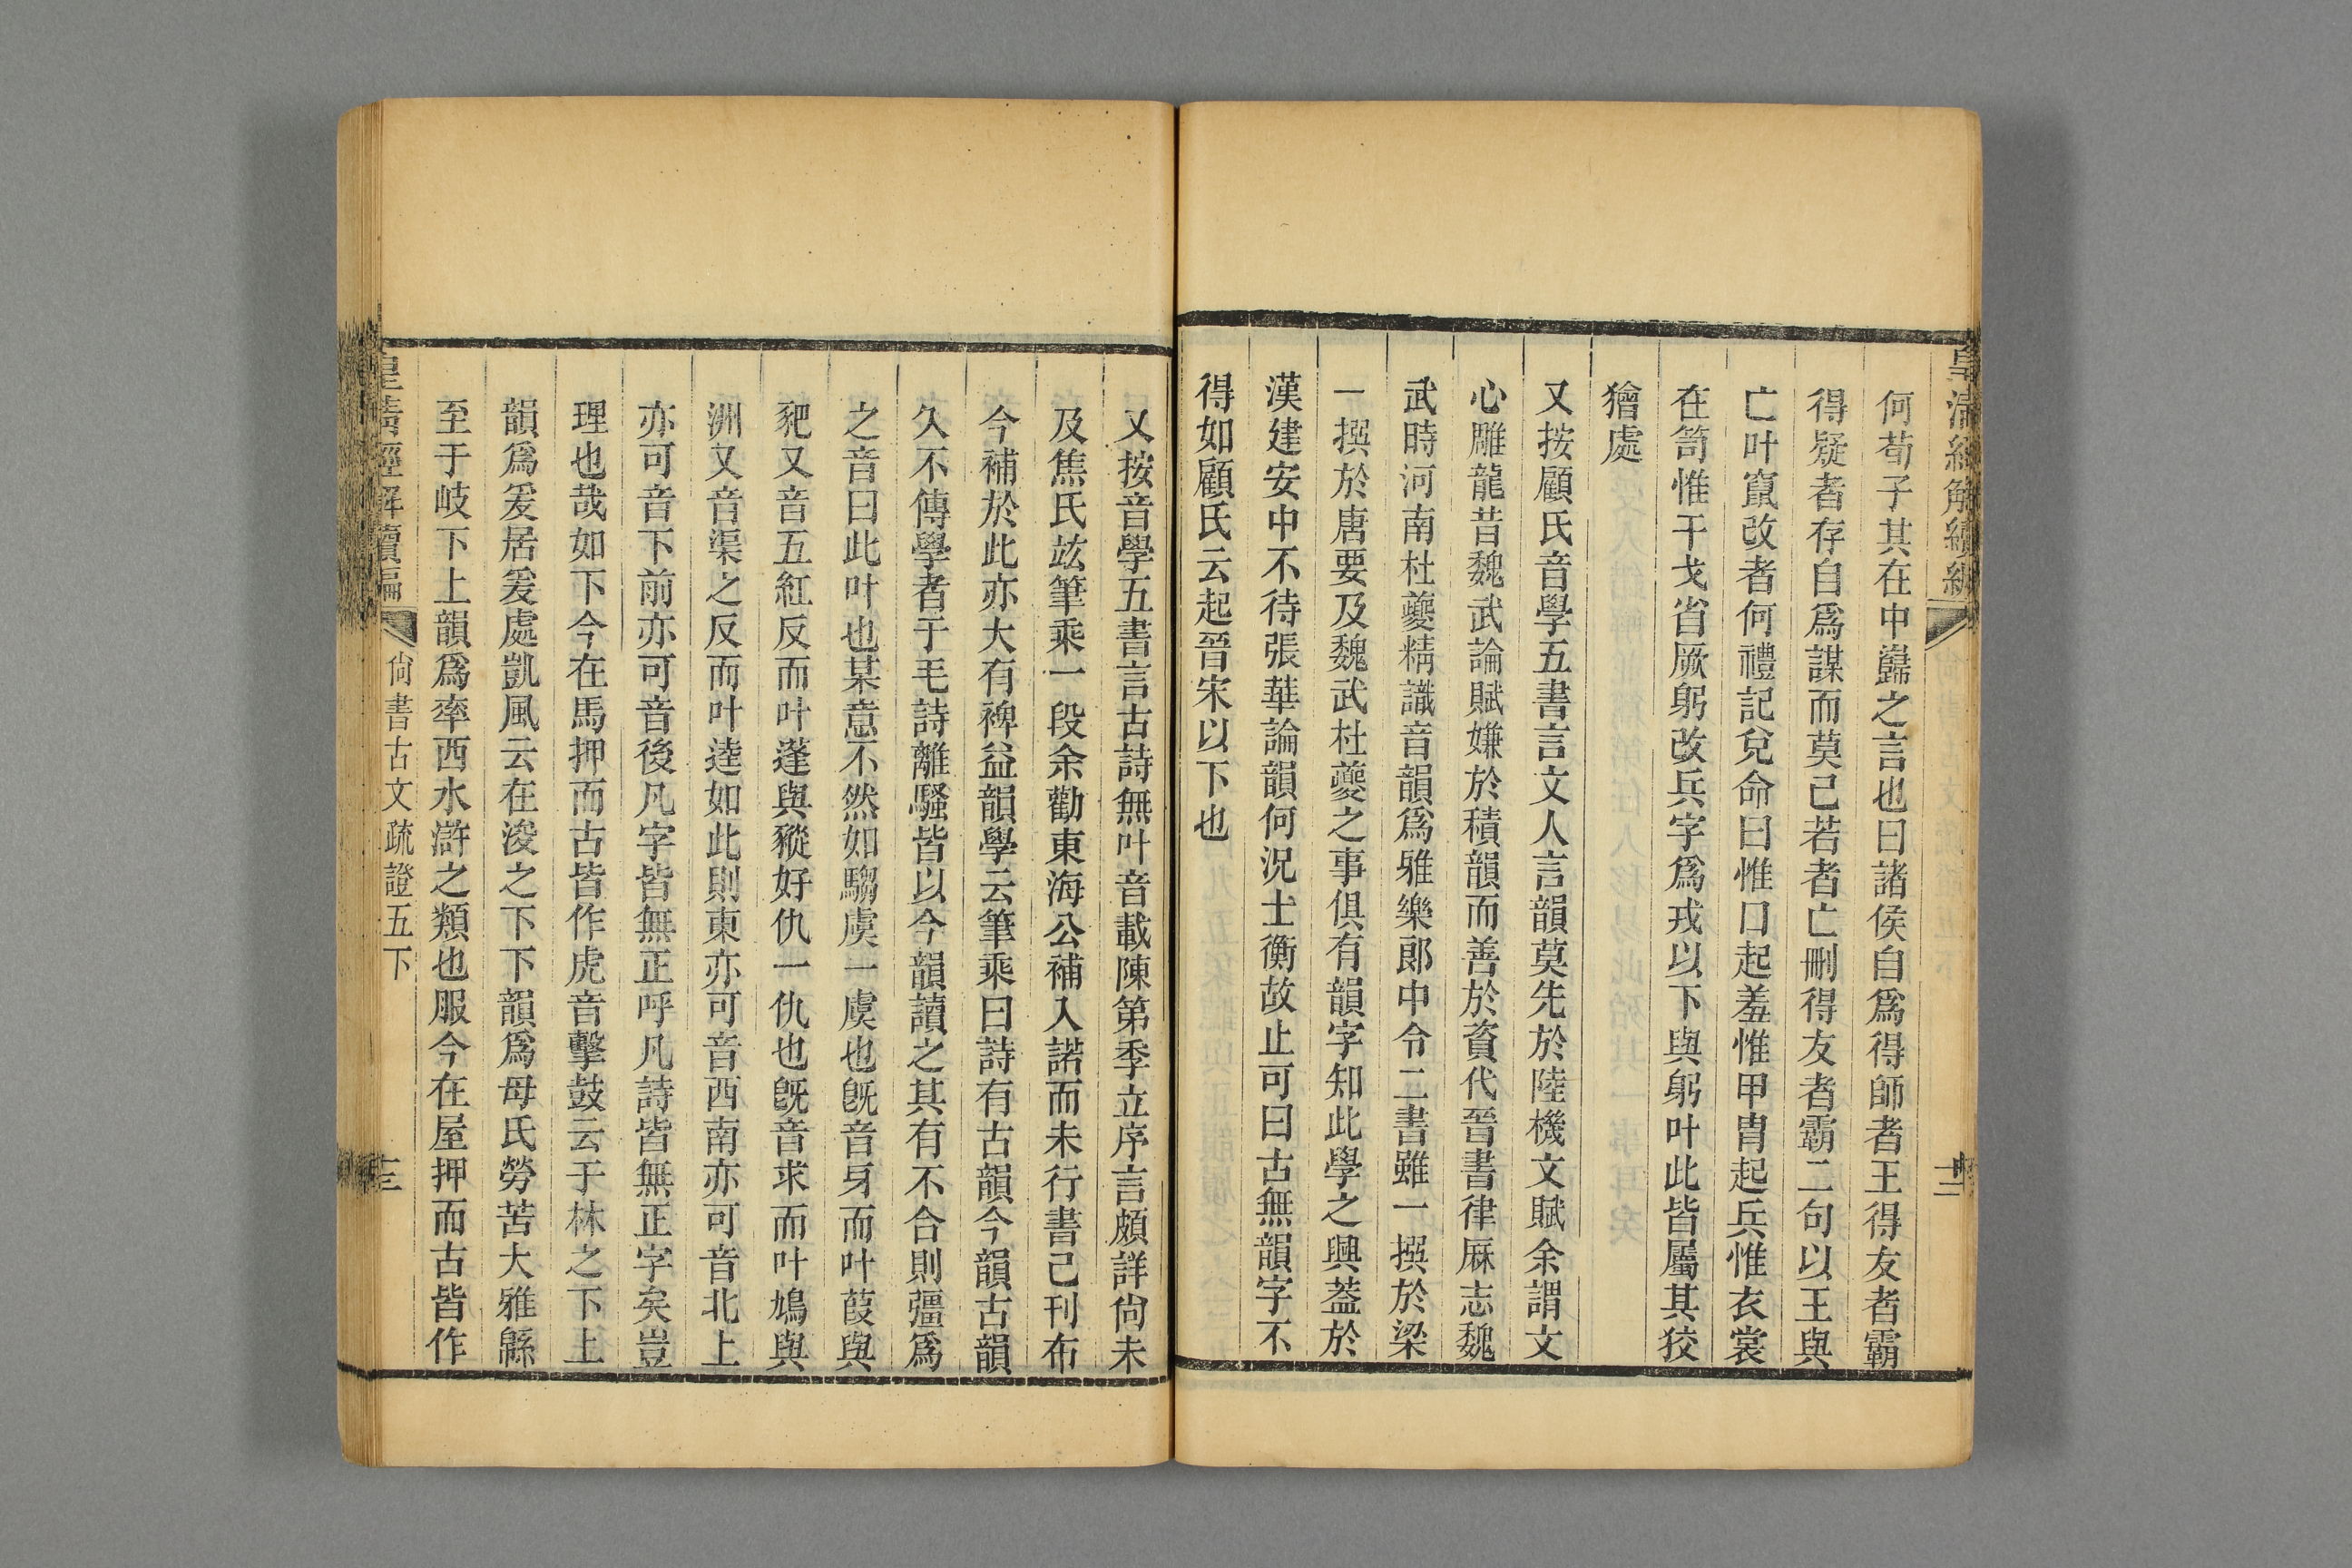 皇清經解續編
十二
何荀子其在中蘬之言也曰諸侯自爲得師者王得友者霸
得疑者存自爲謀而莫己若者亡刪得友者霸二句以王與
亡叶竄改者何禮記兌命曰惟口起羞惟甲冑起兵惟衣裳
在笥惟干戈省厥躬改兵字爲戎以下與躬叶此皆屬其狡
獪處
又按顧氏音學五書言文人言韻莫先於陸機文賦余謂文
心雕龍昔魏武論賦嫌於積韻而善於資代晉書律厤志魏
武時河南杜夔精識音韻爲雅樂郎中令二書雖一撰於梁
一撰於唐要及魏武杜夔之事俱有韻字知此學之興蓋於
漢建安中不待張華論韻何況士衡故止可曰古無韻字不
得如顧氏云起晉宋以下也
又按音學五書言古詩無叶音載陳第季立序言頗詳尙未
及焦氏竑筆乘一段余勸東海公補入諾而未行書已刊布
今補於此亦大有裨益韻學云筆乘曰詩有古韻今韻古韻
久不傳學者于毛詩離騷皆以今韻讀之其有不合則彊爲
之音曰此叶也某意不然如騶虞一虞也旣音身而叶葭與
豝又音五紅反而叶蓬與豵好仇一仇也旣音求而叶鳩與
洲又音渠之反而叶逵如此則東亦可音西南亦可音北上
亦可音下前亦可音後凡字皆無正呼凡詩皆無正字矣豈
理也哉如下今在馬押而古皆作虎音擊鼓云于林之下上
韻爲爰居爰處凱風云在浚之下下韻爲母氏勞苦大雅緜
至于岐下上韻爲率西水滸之類也服今在屋押而古皆作
皇清經解續編
尙書古文疏證五下
十三